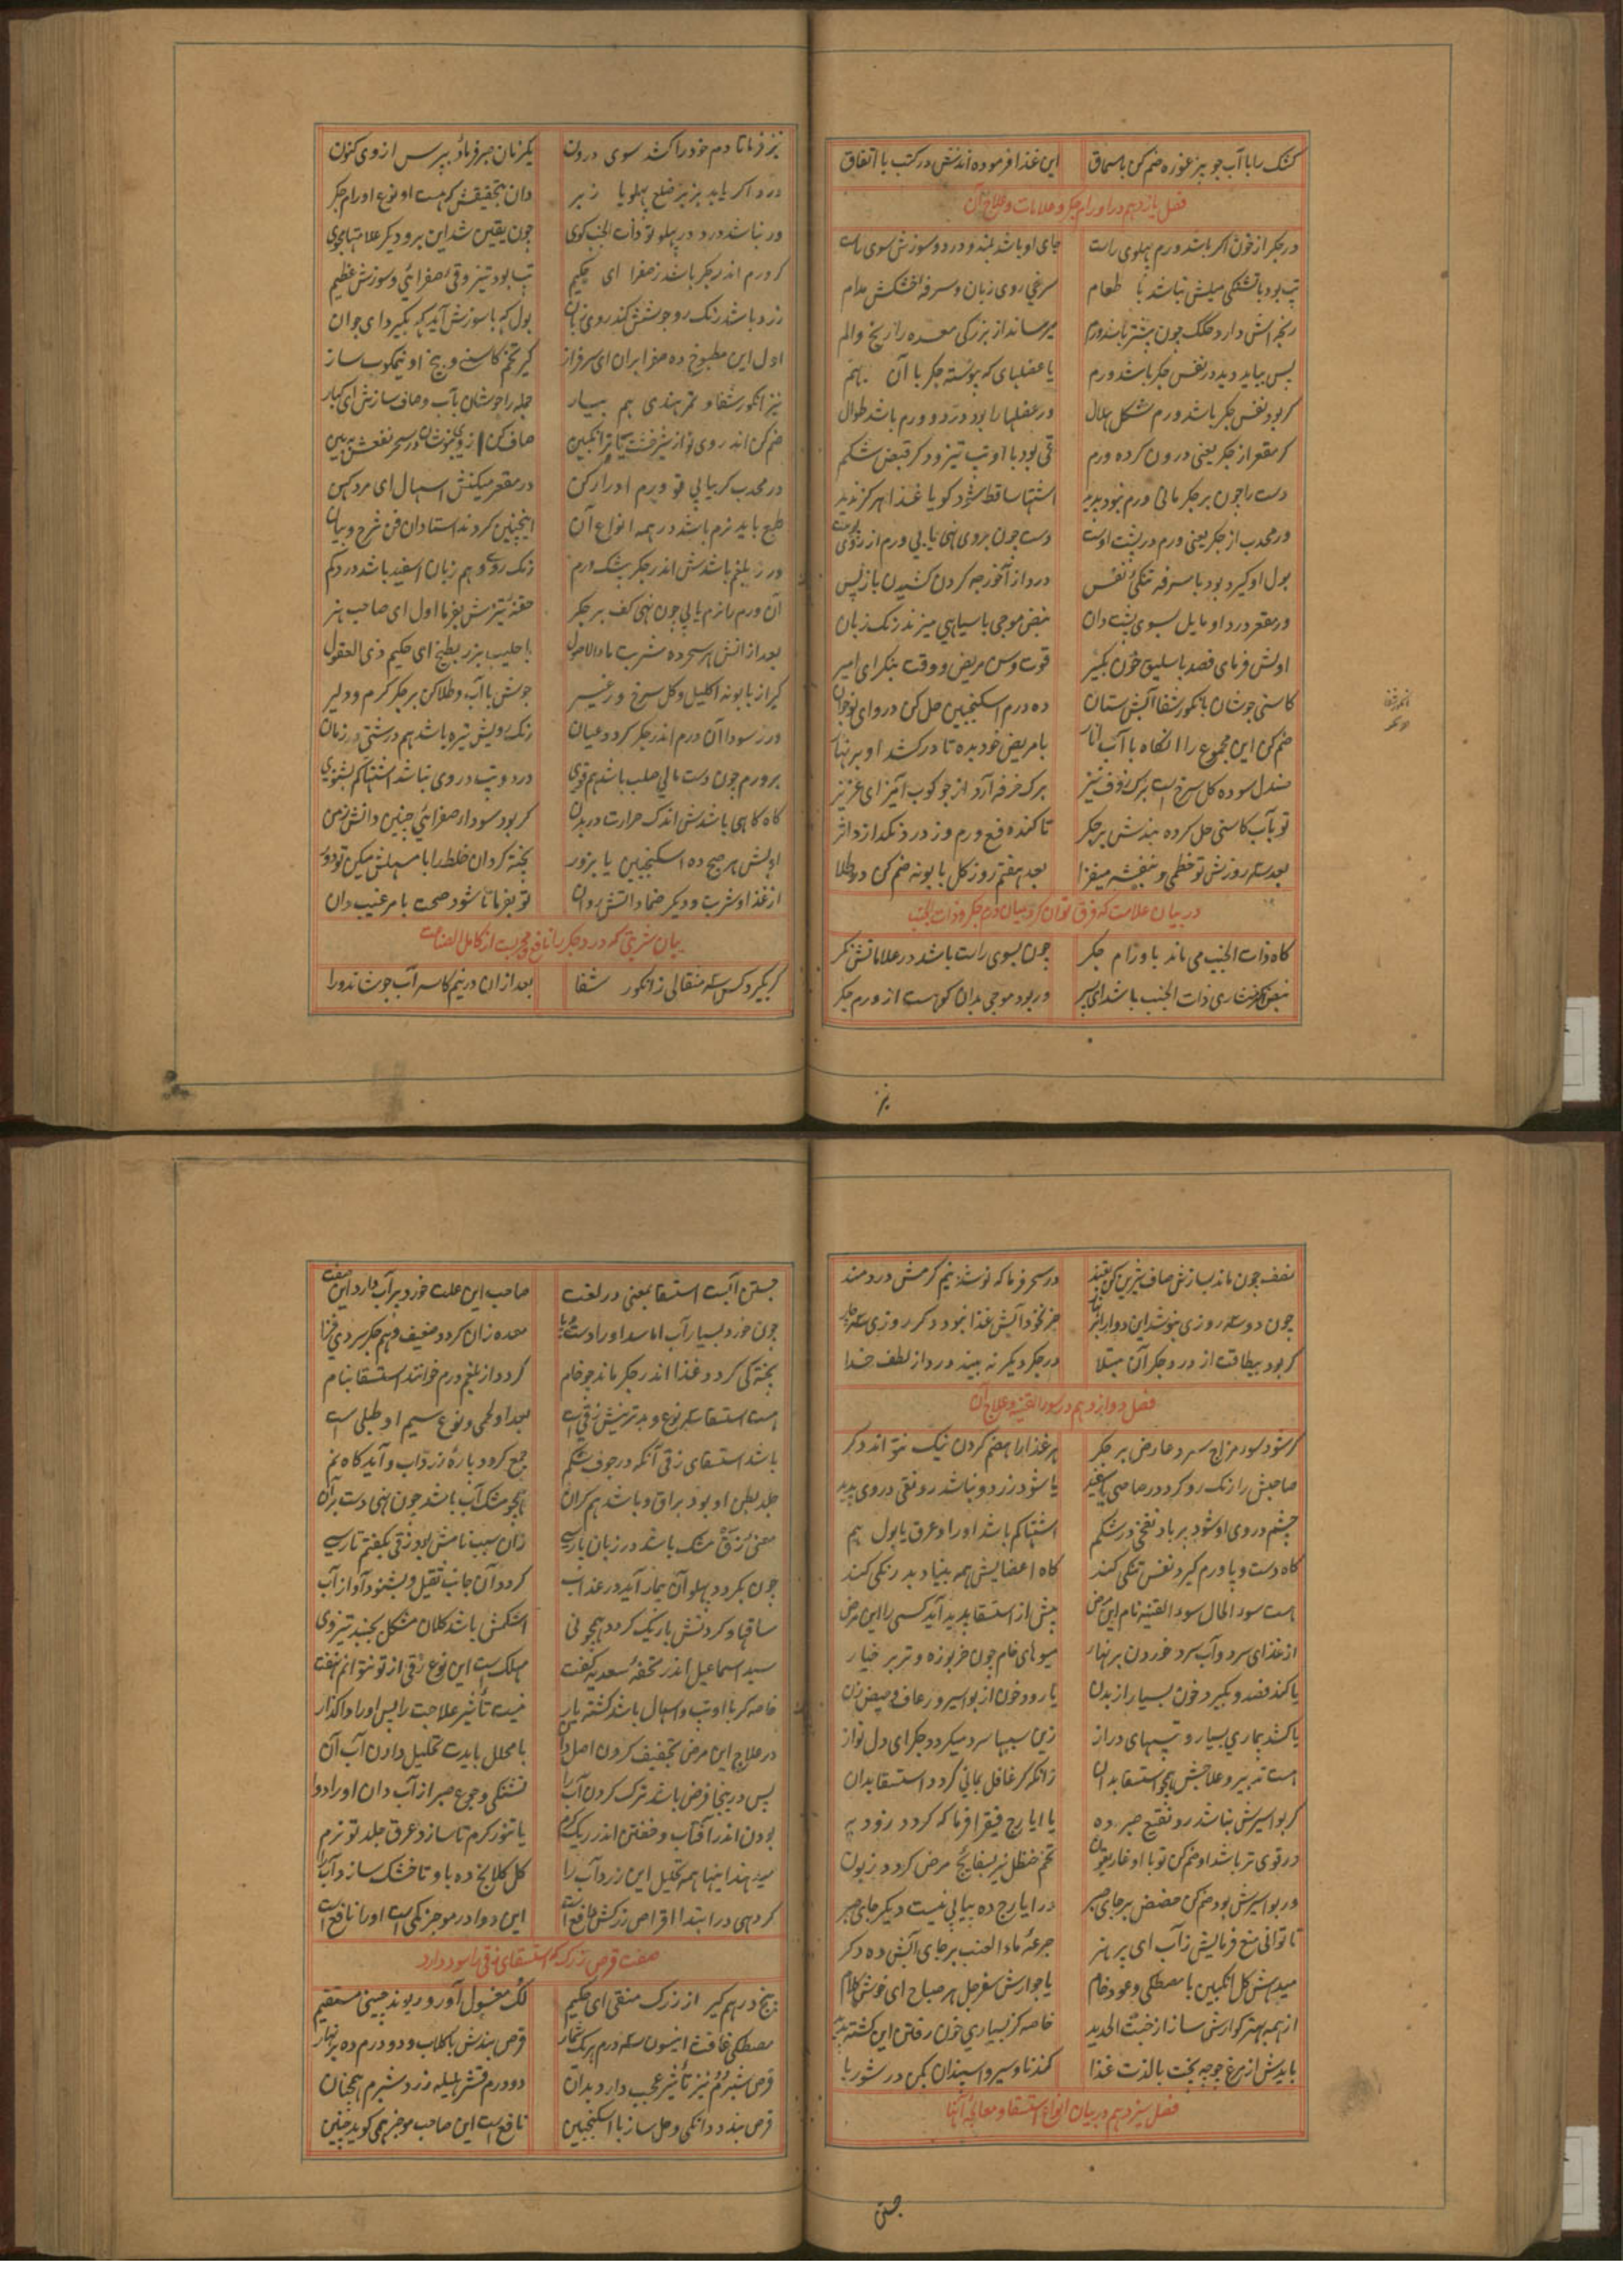 کشک را با آب جو پز غوره ضم کن با سماق این غذا فرموده اندش در کتب با اتفاق
فصل یازدهم در اورام جکر و علامات و علاج آن
در جکر از خون اکر باشد ورم پهلوی راست جای او باشد بلند و درد و سوزش سوی راست
تب بود با تشنکی میلش نباشد با طعام سرخی روی و زبان و سرفهٔ خشکش مدام
میرساند از بزرکی معده را رنج و الم
پس بباید دید در نفس جکر باشد ورم یا عضلهای که پوسته جکر با آن بهم
کر بود نفس جکر باشد ورم شکل هلال ور عضلها را بود درد و ورم باشد طوال
کر مقعر از جکر یعنی درون کرده ورم قی بود با او تب تیز و دکر قبض شکم
دست را چون بر جکر مالی ورم نبود پدید اشتها ساقط شود کویا غذا هرکز ندید
ور محدب از جکر یعنی ورم در پشت اوست دست چون بر وی نهی یابی ورم از روی پوست
بول او کیرد بود با سرفه تنکی نفس درد از آخور چه کردن کشیدن باز پس
ور مقعر درد او مایل بسوی پشت دان نبض موجی با سیاهی میزند رنک زبان
اولش فرمای فصد باسلیق خون بکیر قوت و سن مریض و وقت بنکر ای امیر
کاسنی جوشان با نکور شفا آبش ستان ده درم اسکنجبین حل کن در و ای نوجوان
ضم کن این مجموع را آنکاه با آب انار با مریض خود بده تا درکشد او بر نهار
صندل سوده کل سرخ است برک زوف نیز برک خرفه آرد از جو کوب آمیز ای عزیز
تو بآب کاسنی حل کرده بندش بر جکر تا کند دفع ورم وز درد نکذارد اثر
بعد سه روزش تو خطمی و بنفشه میفزا بعد هفتم روز کل بابونه ضم کن در طلا
در بیان علامت که فرق توان کرد میان ورم جکر و ذات الجنب
کاه ذات الجنب می ماند باورام جکر چون بسوی راست باشد در علاماتش نکر
نبض اکر منشاری ذات الجنب باشد ای پسر ور بود موجی بدان کو هست از ورم جکر
نیز
نیز فرما تا دم خود را کشد سوی درون یکزمان صبر فرماد بپرس از وی کنون
درد اکر یابد بزیر ضلع پهلو یا زبر دان بتحقیقش که هست او نوع اورام جکر
ور نباشد درد در پهلو تو ذات الجنب کوی چون یقین شد این برو دیکر علامتها بجوی
کر ورم اندر جکر باشد ز صفرا ای حکیم تب بود تیز و قی صفرائی و سوزش عظیم
زرد باشد رنک رو جوشش کند روی زبان بول که با سوزش آید که بکیرد ای جوان
اول این مطبوخ ده صفرا بران ای سرفراز کیر تخم کاسنی و بیخ او نیمکوب ساز
نیز انکور شفا و تمر هندی هم بیار جمله را جوشان بآب و صاف سازش ای کبار
ضم کن اندر وی تو از شیرخشت یا ترانکبین صاف کن
در محدب کر بیابی تو ورم ادرار کن در مقعر میکنش اسهال ای مرد کهن
طبع باید نرم باشد در همه انواع آن اینچنین کردند استادان فن شرح و بیان
ور ز بلغم باشدش اندر جکر بیشک ورم رنک روی و هم زبان اسفید باشد در دکم
آن ورم را نرم یابی چون نهی کف بر جکر حقنهٔ تیزش بفرما اول ای صاحب هنر
بعد از آتش هر سحر ده شربت ماء الاصول با حلیب بزر بطیخ ای حکیم ذی العقول
کیر از بابونه اکلیل و کل سرخ و زغیر جوش با آب و طلا کن بر جکر کرم و دلیر
ور ز سودا آن ورم اندر جکر کردد عیان رنک رویش تیره باشد هم درشتی در زبان
بر ورم چون دست مالی صلب باشد هم قوی درد و تب در وی نباشد اشتها کم بشنوی
کاه کاهی باشدش اندک حرارت در بدن کر بود سودا ز صفرائی چنین دانش ز من
اولش هر صبح ده اسکنجبین با بزور پخته کردان خلط را با مسهلش میکن تو دور
از غذا و شربت و دیکر ضماد آتش روان تو بفرما تا شود صحت بامر غیب دان
بیان شربتی که درد جکر را نافع و مجربست از کامل الصناعت
کر بکیرد کس سه مثقالی ز انکور شفا بعد از آن در نیم کاسه آب جوشاند ورا
نصف چون ماند بسازش صاف شیرین کن بقند در سحر فرما که نوشد نیم کرمش دردمند
چون دو سه روزی بنوشد این دوا را جز نخود آبش غذا نبود دکر روزی سه چار
کر بود بیطاقت از درد جکر آن مبتلا در جکر دیکر نه بیند درد از لطف خدا
فصل دوازدهم در سوء القنیه و علاج آن
کر شود سوء مزاج سرد عارض بر جکر مر غذا را هضم کردن نیک نتواند دکر
صاحبش را رنک رو کردد رصاصی یا سفید یا شود زرد و نباشد رونقی در وی پدید
چشم در روی او شود پر باد نفخی در شکم اشتها کم باشد او را و عرق یا بول هم
کاه دست و پا ورم کیرد نفس تنکی کند کاه اعضایش همه بنیاد بدرنکی کند
هست سوء الحال سوء القنیه نام این مرض پیش از استسقا پدید آید کسی را این مرض
از غذای سرد و آب سرد خوردن بر نهار میوهای خام چون خربوزه و تربز خیار
یا کند فصد و بکیرد خون بسیار از بدن یا رود خون از بواسیر و رعاف و حیض زن
یا کشد بیماری بسیار و تبهای دراز زین سببها سرد میکردد جکر ای دل نواز
هست تدبیر و علاجش همچو استسقا بدان زانکه کر غافل بمانی کردد استسقا بدان
کر بواسیرش نباشد رو نقیع صبر ده یا ایارج فیقرا فرما که کردد زود به
ور قوی تر باشد او ضم کن تو با او غاریقون تخم حنظل نیز بسفایج مرض کردد زبون
ور بواسیرش بود ضم کن حضض بر جای صبر در ایارج ده بیابی نیست دیکر جای صبر
تا توانی منع فرمایش ز آب ای پر هنر جرعهٔ ماء العنب بر جای آبش ده دکر
میدهش کل انکبین با مصطکی و عود خام یا جوارش سفرجل هر صباح ای خوش کلام
از همه بهتر کوارش ساز از خبث الحدید خاصه کز بسیاری خون رفتن این کشته پدید
بایدش از مرغ جوجه پخت بالذت غذا کندنا و سیر و اسپندان بکن در شوربا
فصل سیزدهم در بیان انواع استسقا و معالجهٔ آنها
جستن
جستن آبست استسقا بمعنی در لغت صاحب این علت خورد پر آب دارد این صفت
چون خورد بسیار آب معده زان کردد ضعیف و هم جکر سردی فزا
پخته کی کردد غذا اندر جکر ماند چو خام کردد از بلغم ورم خوانند استسقا بنام
هست استسقا سه نوع و بدترینش زقی است بعد او لحمی و نوع سیم او طبلی است
باشد استسقای زقی آنکه در جوف شکم جمع کردد پارهٔ زرداب و آید کاه نم
جلد بطن او بود براق و باشد هم کران همچو مشک آب باشد چون نهی دست بر آن
معنی زق مشک باشد در زبان پارسی زان سبب نامش بود زقی بکفتم تا رسی
چون بکردد پهلو آن بیمار آید در عذاب کردد آن جانب ثقیل و بشنود آواز آب
ساقها و کردنش باریک کردد همچو نی اشکمش باشد کلان مشکل بجنبد تیز وی
سید اسماعیل اندر تحفهٔ سعدیه کفت مهلک است این نوع زقی از تو نتوانم نهفت
خاصه کر با او تب و اسهال باشد کشته یار نیست تأثیر علاجت را پس او را واکذار
در علاج این مرض تجفیف کردن اصل دان با محلل بایدت تحلیل دادن آب آن
پس درینجا فرض باشد ترک کردن آب را تشنکی و جوع صبر از آب دان او را دوا
بودن اندر آفتاب و خفتن اندر ریک کرم یا تنور کرم تا سازد عرق جلد تو نرم
میدهند اینها همه تحلیل این زرداب را کل کلانج ده باو تا خشک سازد آب را
کر دهی در ابتدا اقراص زرکش نافع است این دوا در موجز نکی است او را نافع است
صفت قرص زرک که استسقای زقی را سود دارد
پنج درهم کیر از زرک منقی ای حکیم لک مغسول آور و ریوند چینی مستقیم
مصطکی غافث انیسون سه درم هر یک شمار قرص بندش با کلاب و دو درم ده بر نهار
قرص شبرم نیز تأثیر عجب دارد بدان دو درم قشر هلیله زرد شبرم همچنان
قرص بندد دانکی و حل ساز با اسکنجبین نافع است این صاحب موجز همی کوید چنین